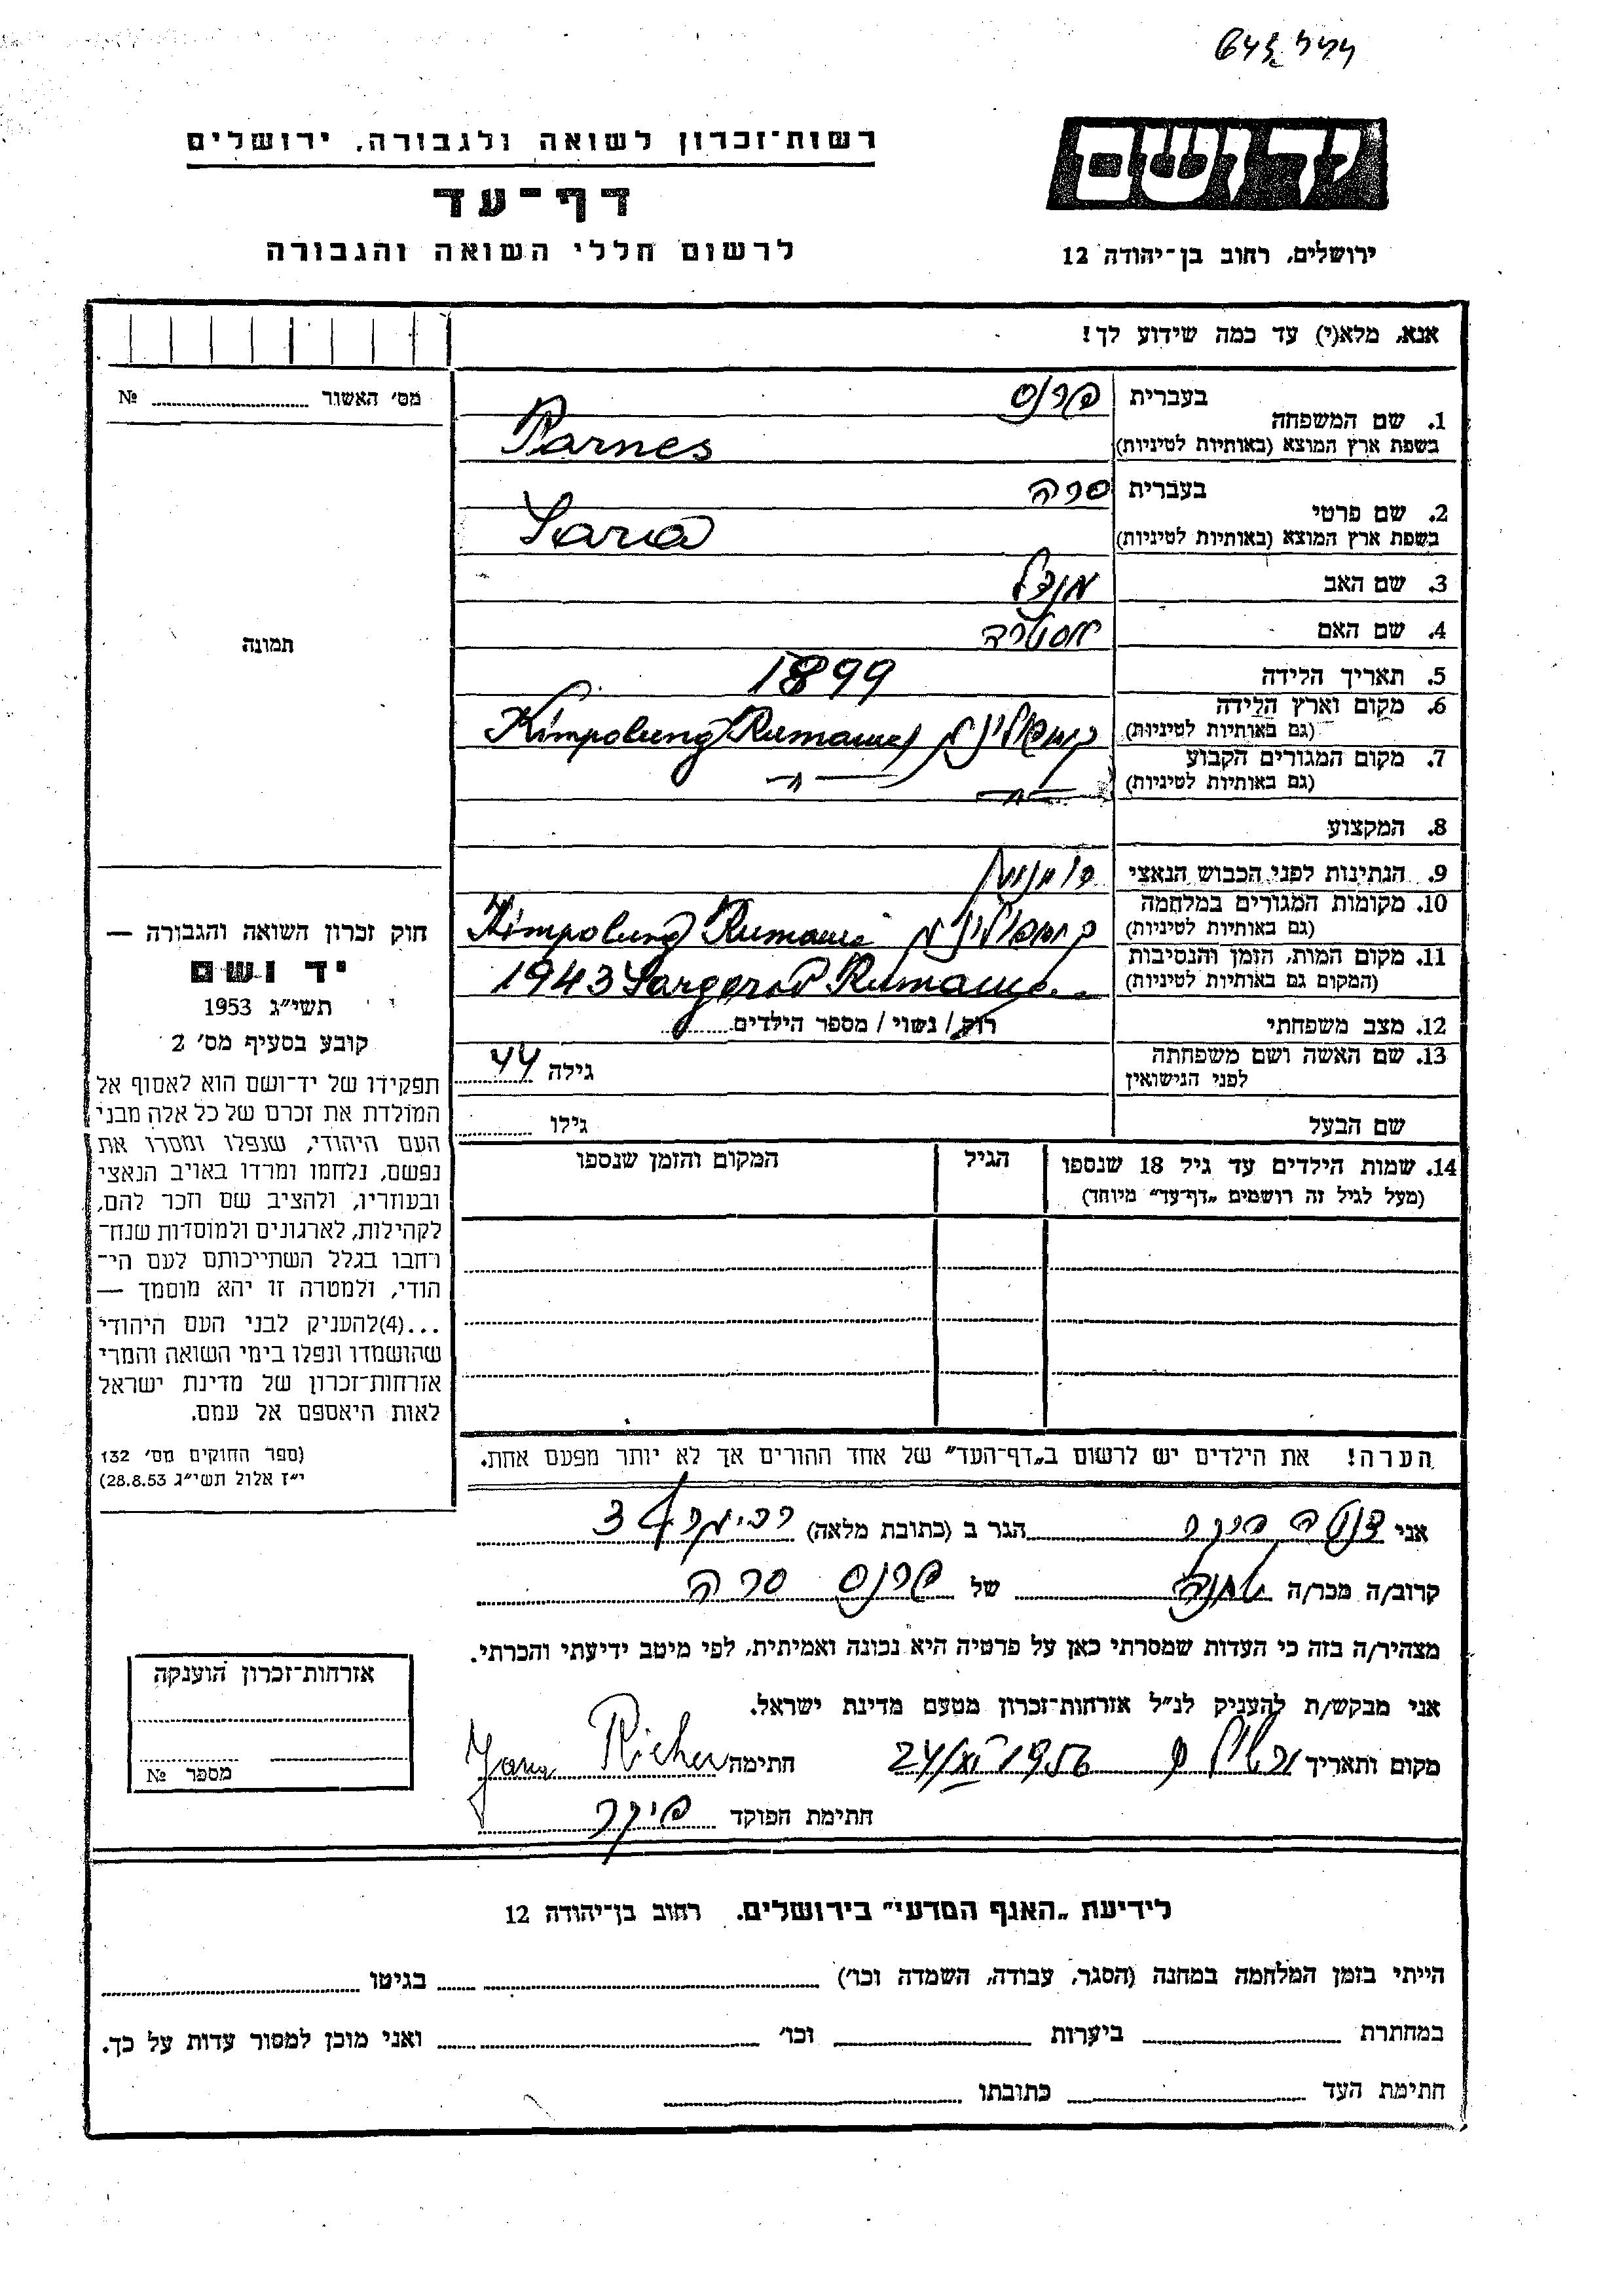 רשות־זכרון לשואה ולגבורה, ירושלים
דף־עד
לרשום חללי השואה והגבורה
יד ושם
ירושלים, רחוב בן־יהודה 12
אנא, מלא(י) עד כמה שידוע לך!
מס׳ האשור № 
1. שם המשפחה בעברית פרנס
בשפת ארץ המוצא (באותיות לטיניות) Parnes
2. שם פרטי בעברית שרה
בשפת ארץ המוצא (באותיות לטיניות) Sara
3. שם האב מנדל
4. שם האם אסתרה
5. תאריך הלידה 1899
6. מקום וארץ הלידה
(גם באותיות לטיניות) Kimpolung Rumanie
7. מקום המגורים הקבוע
(גם באותיות לטיניות) —"— —"—
8. המקצוע
9. הנתינות לפני הכבוש הנאצי רומנית
10. מקומות המגורים במלחמה
(גם באותיות לטיניות) Kimpolung Rumanie
11. מקום המות, הזמן והנסיבות
(המקום גם באותיות לטיניות) 1943 Sargorod Rumanie
12. מצב משפחתי רוק / נשוי / מספר הילדים
13. שם האשה ושם משפחתה
לפני הנישואין גילה 44
שם הבעל גילו
תמונה
חוק זכרון השואה והגבורה —
יד ושם
תשי״ג 1953
קובע בסעיף מס׳ 2
תפקידו של יד־ושם הוא לאסוף אל
המולדת את זכרם של כל אלה מבני
העם היהודי, שנפלו ומסרו את
נפשם, נלחמו ומרדו באויב הנאצי
ובעוזריו, ולהציב שם וזכר להם,
לקהילות, לארגונים ולמוסדות שנח־
רבו בגלל השתייכותם לעם הי־
הודי, ולמטרה זו יהא מוסמך —
...(4)להעניק לבני העם היהודי
שהושמדו ונפלו בימי השואה והמרי
אזרחות־זכרון של מדינת ישראל
לאות היאספם אל עמם.
(ספר החוקים מס׳ 132
י״ז אלול תשי״ג 28.8.53)
14. שמות הילדים עד גיל 18 שנספו
(מעל לגיל זה רושמים „דף־עד״ מיוחד)
הגיל
המקום והזמן שנספו
הערה! את הילדים יש לרשום ב„דף־העד״ של אחד ההורים אך לא יותר מפעם אחת.
אני הגר ב (כתובת מלאה) 34
קרוב/ה מכר/ה של פרנס שרה
מצהיר/ה בזה כי העדות שמסרתי כאן על פרטיה היא נכונה ואמיתית, לפי מיטב ידיעתי והכרתי.
אני מבקש/ת להעניק לנ״ל אזרחות־זכרון מטעם מדינת ישראל.
מקום ותאריך 24/XI 1956 חתימה Richer
חתימת הפוקד
אזרחות־זכרון הוענקה
מספר №
לידיעת „האגף המדעי״ בירושלים, רחוב בן־יהודה 12
הייתי בזמן המלחמה במחנה (הסגר, עבודה, השמדה וכו׳) בגיטו
במחתרת ביערות וכו׳ ואני מוכן למסור עדות על כך.
חתימת העד כתובתו